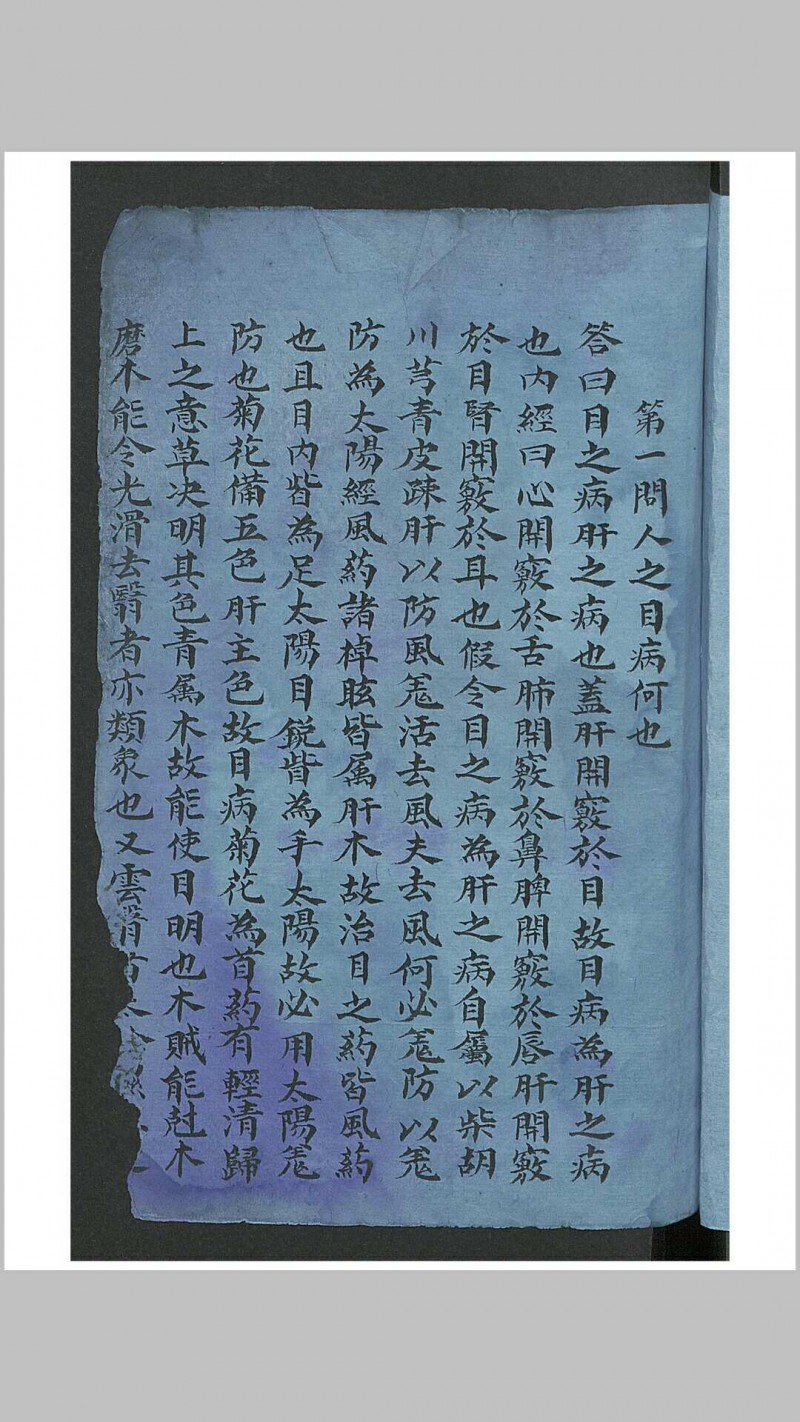 第一問人之目病何也
答曰目之病肝之病也蓋肝開竅於目故目病為肝之病
也内經曰心開竅於舌肺開竅於鼻脾開竅於唇肝開竅
於目腎開竅於耳也假令目之病為肝之病自屬以柴胡
川芎青皮疎肝以防風羗活去風夫去風何必羗防以羗
防為太陽經風药諸掉眩皆属肝木故治目之药皆風药
也且目内眥為足太陽目銳眥為手太陽故必用太陽羗
防也菊花備五色肝主色故目病菊花為首药有輕清歸
上之意草决明其色青属木故能使目明也木賊能尅木
磨木能令光滑去翳者亦類象也又雲翳